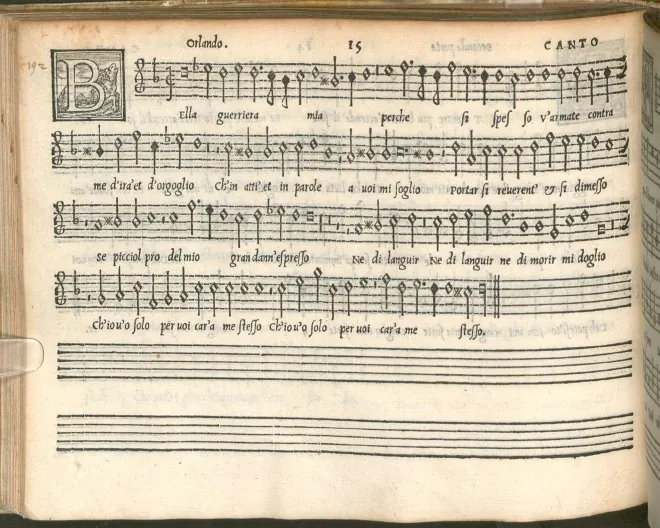 Orlando. 15 CANTO
192
BElla guerriera mia perche si spes so v'armate contra
me d'ira et d'orgoglio Ch'in atti' et in parole a uoi mi soglio Portar si reuerent' & si dimesso
se picciol pro del mio gran dann'espresso Ne di languir Ne di languir ne di morir mi doglio
Ch'io u'o solo per uoi car'a me stesso Ch'io u'o solo per uoi car'a me stesso.